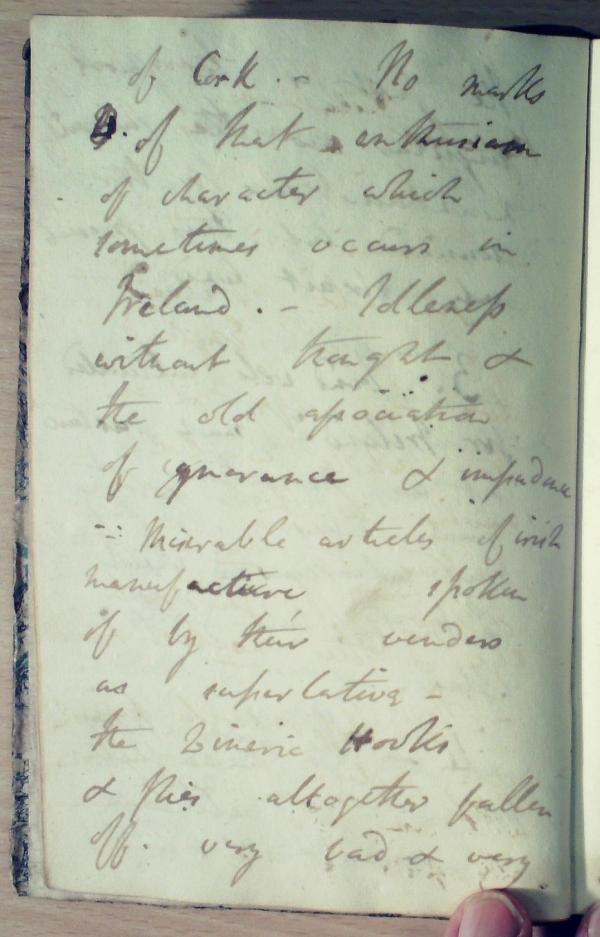 of Cork. - No marks
of that enthusiasm
of character which
sometimes occurs in
Ireland. - Idleness
without thought &
the old association
of ignorance & impudence
Miserable articles of irish
manufacture spoken
of by their venders
as superlative -
the Limeric Hooks
& flies altogether fallen
off. very bad & very